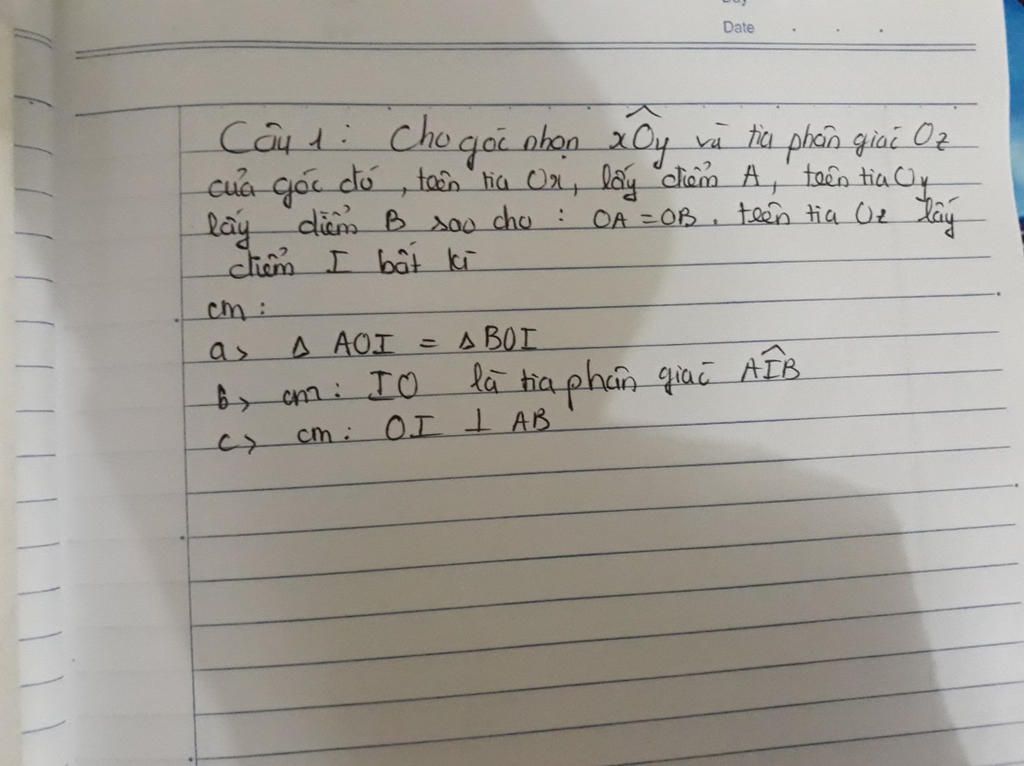 Day
Date
Câu 1: Cho góc nhọn xÔy và tia phân giác Oz
của góc đó, trên tia Ox, lấy điểm A, trên tia Oy
lấy điểm B sao cho: OA = OB. trên tia Oz lấy
điểm I bất kì
cm:
a> Δ AOI = Δ BOI
b> cm: IO là tia phân giác AÎB
c> cm: OI ⊥ AB